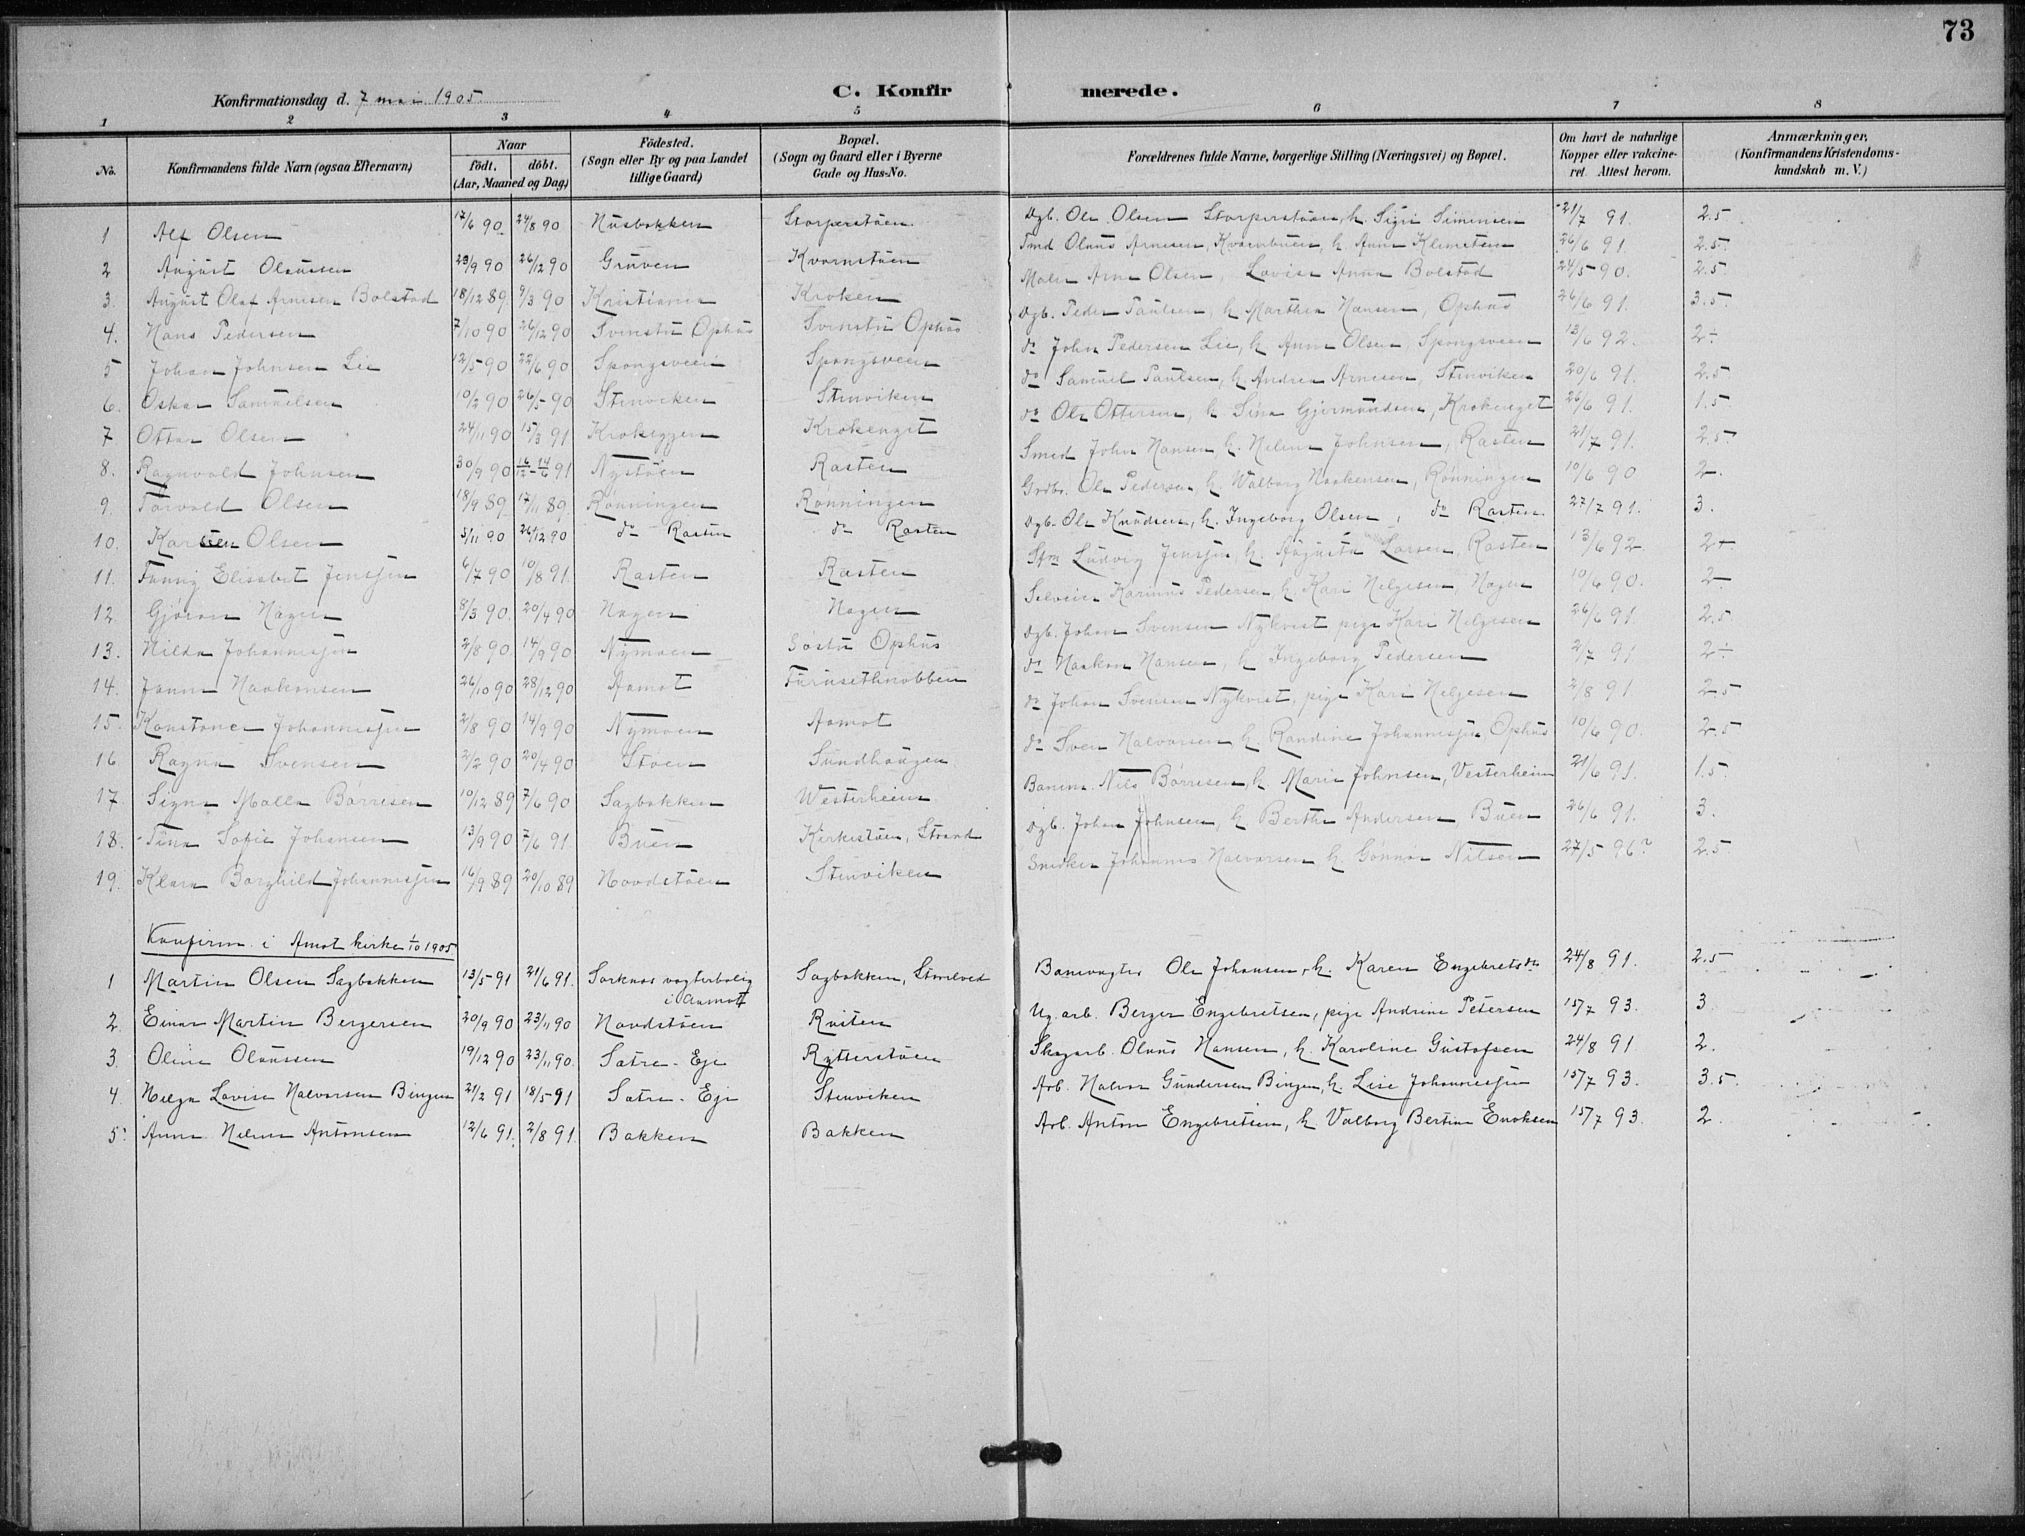 73
Konfirmationsdag d. 7 mai 1905.
C. Konfirmerede.
1 2 3 4 5 6 7 8
No.
Konfirmandens fulde Navn (ogsaa Efternavn)
Naar
födt. döbt.
(Aar, Maaned og Dag)
Födested.
(Sogn eller By og paa Landet
tillige Gaard)
Bopæl.
(Sogn og Gaard eller i Byerne
Gade og Hus-No.
Forældrenes fulde Navne, borgerlige Stilling (Næringsvei) og Bopæl.
Om havt de naturlige
Kopper eller vakcine-
ret Attest herom.
Anmærkninger,
(Konfirmandens Kristendoms-
kundskab m. V.)
1 Alf Olsen 17/6 90. 24/8 90 Husbakken Storperstöen Dgb. Ole Olsen Storperstöen, h. Sigri Simensen 21/7 91. 2.5
2 August Olaussen 23/9 90 26/12 90 Gruven Kvernstöen Tmd Olaus Arnesen, h. Anne Klemetsen 26/6 91. 2.5
3. August Olaf Arnesen Bolstad 18/12 89. 9/3 90 Kristiania Kroken Maler Arne Olsen, Lovise Anna Bolstad 24/5 90. 2.5
4. Hans Pedersen 7/10 90 26/12 90 Svenstu Ophus Svenstu Ophus Dgb. Peder Paulsen, h Marthea Hansen, Ophus 26/6 91. 3.5
5 Johan Johnsen Lie 12/5 90 22/6 90 Spongsveen Spongsveen do John Pedersen Lie, h Anne Olsen, Spongsveen 13/6 92. 2÷
6. Oskar Samuelsen 10/2 90 26/5 90 Stenviken Stenviken do Samuel Paulsen, h Andrea Arnesen, Stenviken 20/6 91. 2.5
7 Ottar Olsen 24/11 90 15/3 91 Krokeggen Krokenget do Ole Ottersen, h Sina Gjermundsen, Krokenget 26/6 91. 1.5
8. Ragnvald Johnsen 30/9 90 16/12 - 14/6 91 Nystöen Rasten Smed John Hansen, h. Helene Johnsen, Rasten 21/7 91. 2.5
9. Torvald Olsen 18/9 89. 17/11 89. Rønningen Rønningen Grdbr. Ole Pedersen, h. Walborg Haakensen, Rønningen 10/6 90 2-.
10. Karsten Olsen 3/11 90 26/12 90 do Rasten do Rasten Dgb. Ole Knudsen, h. Ingeborg Olsen, do Rasten. 27/7 91. 3.
11. Fanny Elisabet Jenssen 6/7 90 10/8 91. Rasten Rasten Stm Ludvig Jenssen, h. Augusta Larsen, Rasten 13/6 92 2÷
12. Gjøran Hagen 8/3 90. 20/4 90 Hagen Hagen Selveier Karinus Pedersen, h Kari Helgesen, Hagen 10/6 90. 2-
13. Hilda Johannessen 2/8 90 14/9 90 Nymoen Søstu Ophus Dgb. Johan Svensen Nykvist pige Kari Helgesen 26/6 91. 2.5
14. Janna Haakonsen 26/10 90 28/12 90 Aamot Furusethnobben do Haakon Hansen, h Ingeborg Pedersen 2/7 91 2÷
15. Konstance Johannessen 2/8 90 14/9 90 Nymoen Aamot do Johan Svensen Nykvist, pige Kari Helgesen 2/8 91. 2.5
16 Ragna Svensen 2/2 90 20/4 90 Støen Sundhaugen do Sven Halvorsen h Randine Johannessen Ophus 10/6 90. 2.5
17. Signe Malla Børresen 10/12 89 7/6 90 Sagbakken Westerheim Banem. Nils Børresen, h Marie Johnsen, Vesterheim 21/6 91. 1.5
18. Tina Sofie Johansen 13/9 90 7/6 91. Buen Kirkestöen, Strand Dgb. Johan Johnsen, h. Berthe Andersen, Buen 26/6 91. 3.
19. Klara Borghild Johannessen 16/9 89 20/10 89 Hovdstöen Stenviken Snedker Johannes Halvorsen h. Gunnor Nilsen 27/5 96? 2.5
Konfirm. i Amot kirke 1/10 1905.
1 Martin Olsen Sagbakken 13/5 91 21/6 91. Sorknes vogterbolig Sagbakken, Storelved Banevogter Ole Johansen, h. Karen Engebretsdr 24/8 91. 2.5
i Aamot
2. Einar Martin Bergersen 20/9 90 23/11 90 Hovdstöen Rviten Ug arb. Berger Engebretsen, pige Andrine Petersen 15/7 93. 3
3. Oline Olaussen 19/12 90 23/11 90. Sætre - Eje Rytterstöen Skogarb. Olaus Hansen, h. Karoline Gustafsen 24/8 91 2.
4. Helga Lovise Halvorsen Bingen 21/2 91 18/5 91 Sætre - Eje Stenviken Arb. Halvor Gundersen Bingen, h. Lise Johannessen 15/7 93. 3.5
5. Anna Helene Antonsen 12/6 91. 2/8 91. Bakken Bakken Arb. Anton Engebretsen, h Valborg Bertine Enoksen 15/7 93. 2.